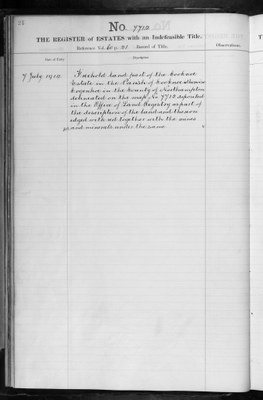 22
No. 7712
THE REGISTER of ESTATES with an Indefeasible Title.
Reference Vol. p. 21 Record of Title.
Observations.
Date of Entry.
Description.
7 July 1910
Freehold Land part of the
Estate in the Parish of
in the County of Northampton
delineated on the map No. 7712 deposited
in the Office of Land Registry as part of
the description of the land and thereon
edged with red together with the mines
and minerals under the same